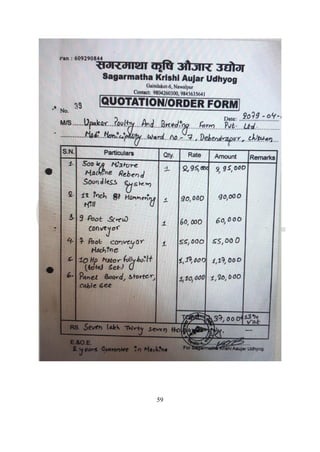 Pan : 609290844
सगरमाथा कृषि औजार उद्योग
Sagarmatha Krishi Aujar Udhyog
Gaindakot-6, Nawalpur
Contact: 9804260300, 9845635641
No. 39
QUOTATION/ORDER FORM
Date: 2079-04-
M/S Upakar Poultry And Breeding Farm Pvt. Ltd.
Madi Municipality ward no-7, Debendrapur, chitwan
S.N. Particulars Qty. Rate Amount Remarks
1. 500 kg Mixture 1 2,95,000 2,95,000
Machine Rebend
Soundless System
2. 18 inch Hammering 1 90,000 90,000
Mill
3. 9 Foot Screw 1 60,000 60,000
conveyor
4. 7 Foot conveyor 1 55,000 55,000
Machine
5. 10 Hp Motor fully built 1,17,000 1,17,000
(full Set)
6. Panel Board, Starter, 1,20,000 1,20,000
cable Gee
Total 37,000 + 13%
Vat
RS. Seven lakh Thirty seven
E.&O.E.
2 years Guarantee in Machine
For Sagarmatha Krishi Aujar Udhyog
59